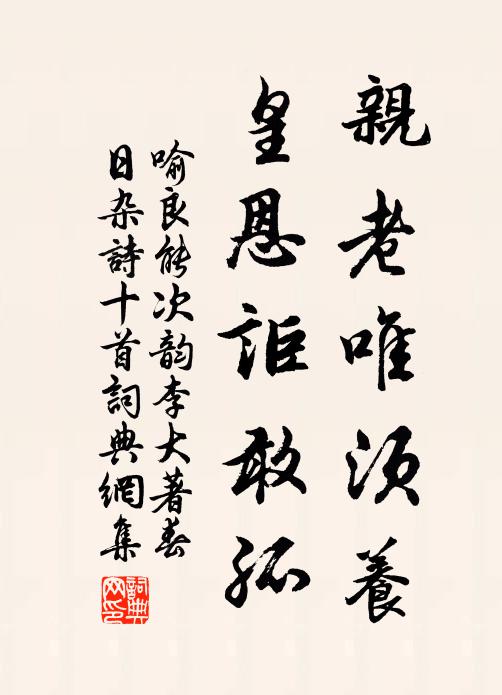 親老唯須養
皇恩詎敢孤
喻良能次韵李大著春
日杂詩十首詞典網集
詞典
网印